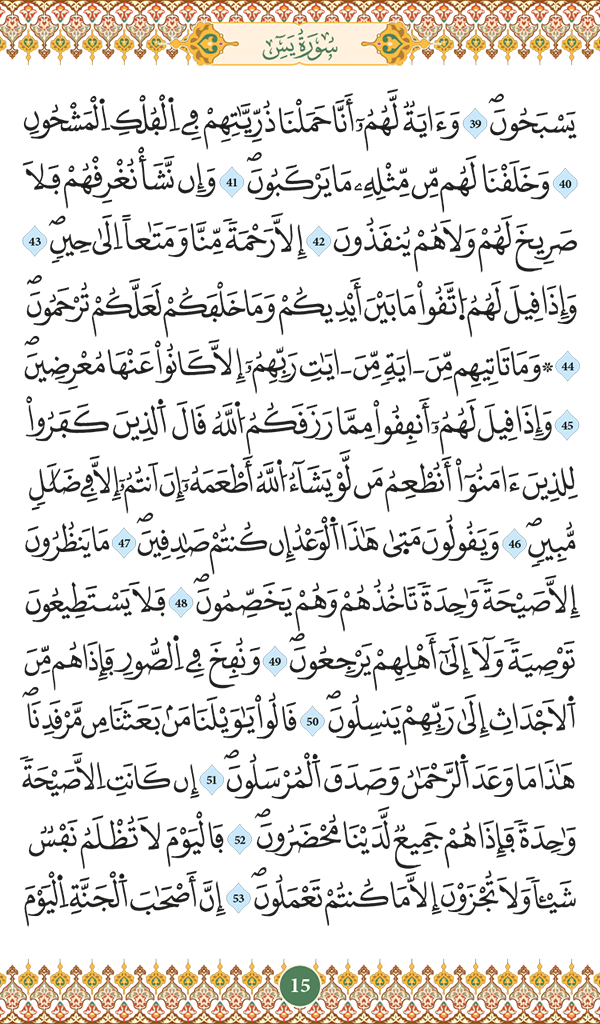 سُورَةُ يَسِٓ
يَسْبَحُونَۖ 39 وَءَايَةٌ لَّهُمُۥٓ أَنَّا حَمَلْنَا ذُرِّيَّٰتِهِمْ فِے اِ۬لْفُلْكِ اِ۬لْمَشْحُونِ
40 وَخَلَقْنَا لَهُم مِّن مِّثْلِهِۦ مَا يَرْكَبُونَۖ 41 وَإِن نَّشَأْ نُغْرِقْهُمْ فَلَا
صَرِيخَ لَهُمْ وَلَا هُمْ يُنقَذُونَ 42 إِلَّا رَحْمَةٗ مِّنَّا وَمَتَٰعاً اِلَيٰ حِينٖۖ 43
وَإِذَا قِيلَ لَهُمُ اُ۪تَّقُواْ مَا بَيْنَ أَيْدِيكُمْ وَمَا خَلْفَكُمْ لَعَلَّكُمْ تُرْحَمُونَۖ
44 ۞وَمَا تَاتِيهِم مِّنَ اٰيَةٖ مِّنَ اٰيَٰتِ رَبِّهِمُۥٓ إِلَّا كَانُواْ عَنْهَا مُعْرِضِينَۖ
45 وَإِذَا قِيلَ لَهُمُۥٓ أَنفِقُواْ مِمَّا رَزَقَكُمُ اُ۬للَّهُ قَالَ اَ۬لذِينَ كَفَرُواْ
لِلذِينَ ءَامَنُوٓاْ أَنُطْعِمُ مَن لَّوْ يَشَآءُ اُ۬للَّهُ أَطْعَمَهُۥٓ إِنَ اَنتُمُۥٓ إِلَّا فِے ضَلَٰلٖ
مُّبِينٖۖ 46 وَيَقُولُونَ مَت۪يٰ هَٰذَا اَ۬لْوَعْدُ إِن كُنتُمْ صَٰدِقِينَۖ 47 مَا يَنظُرُونَ
إِلَّا صَيْحَةٗ وَٰحِدَةٗ تَاخُذُهُمْ وَهُمْ يَخَصِّمُونَۖ 48 فَلَا يَسْتَطِيعُونَ
تَوْصِيَةٗ وَلَآ إِلَيٰٓ أَهْلِهِمْ يَرْجِعُونَۖ 49 وَنُفِخَ فِے اِ۬لصُّورِ فَإِذَا هُم مِّنَ
اَ۬لَاجْدَاثِ إِلَيٰ رَبِّهِمْ يَنسِلُونَۖ 50 قَالُواْ يَٰوَيْلَنَا مَنۢ بَعَثَنَا مِن مَّرْقَدِنَاۖ
هَٰذَا مَا وَعَدَ اَ۬لرَّحْمَٰنُ وَصَدَقَ اَ۬لْمُرْسَلُونَۖ 51 إِن كَانَتِ اِلَّا صَيْحَةٗ
وَٰحِدَةٗ فَإِذَا هُمْ جَمِيعٞ لَّدَيْنَا مُحْضَرُونَۖ 52 فَالْيَوْمَ لَا تُظْلَمُ نَفْسٞ
شَيْـٔاٗ وَلَا تُجْزَوْنَ إِلَّا مَا كُنتُمْ تَعْمَلُونَۖ 53 إِنَّ أَصْحَٰبَ اَ۬لْجَنَّةِ اِ۬لْيَوْمَ
15